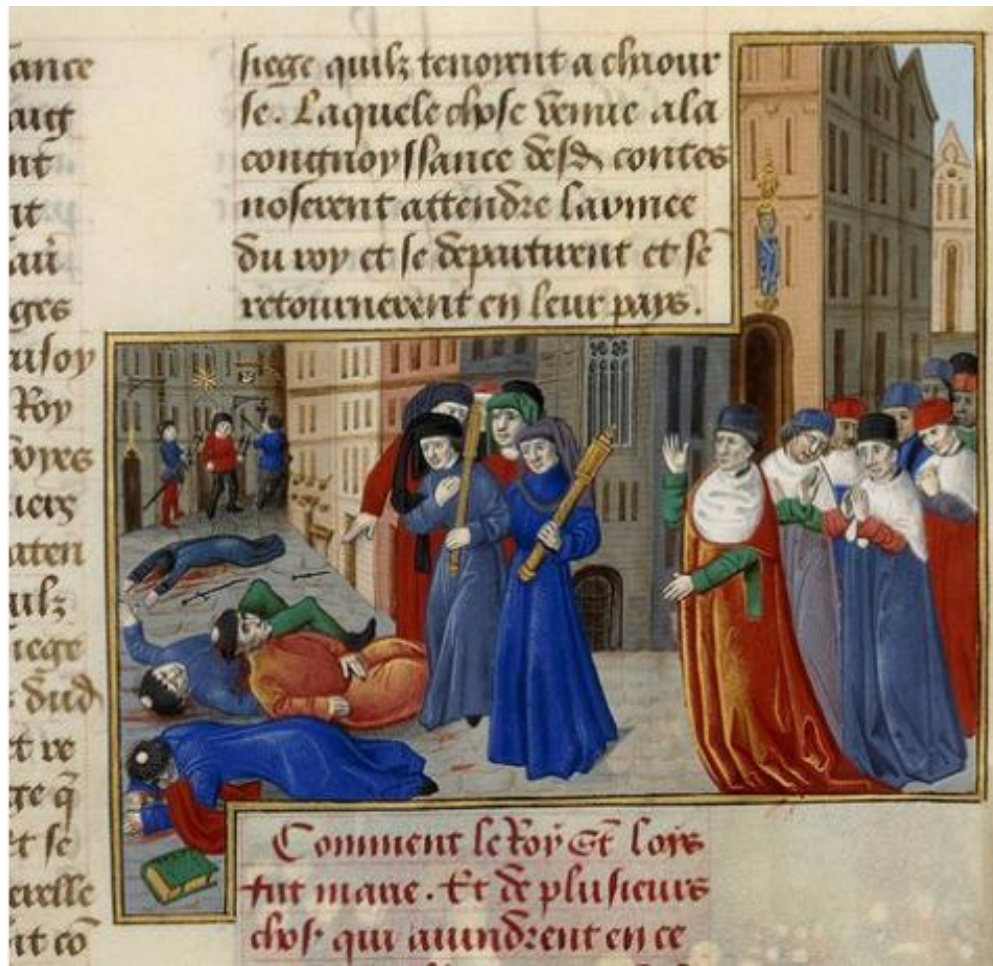 ance
aug
nt
it
au
ges
uisoy
Roy
oyes
iers
aten
uilz
iege
dud
et re
ge q̃
et se
erelle
it cõ
siege quilz tenoyent a chiour
se. Laquele chose venue a la
congnoyssance desd contes
noserent attendre lavmee
du roy et se departirent et se
retournerent en leur pays.
Comment le Roy St loys
fut marie. Et de plusieurs
chos qui auindrent en ce